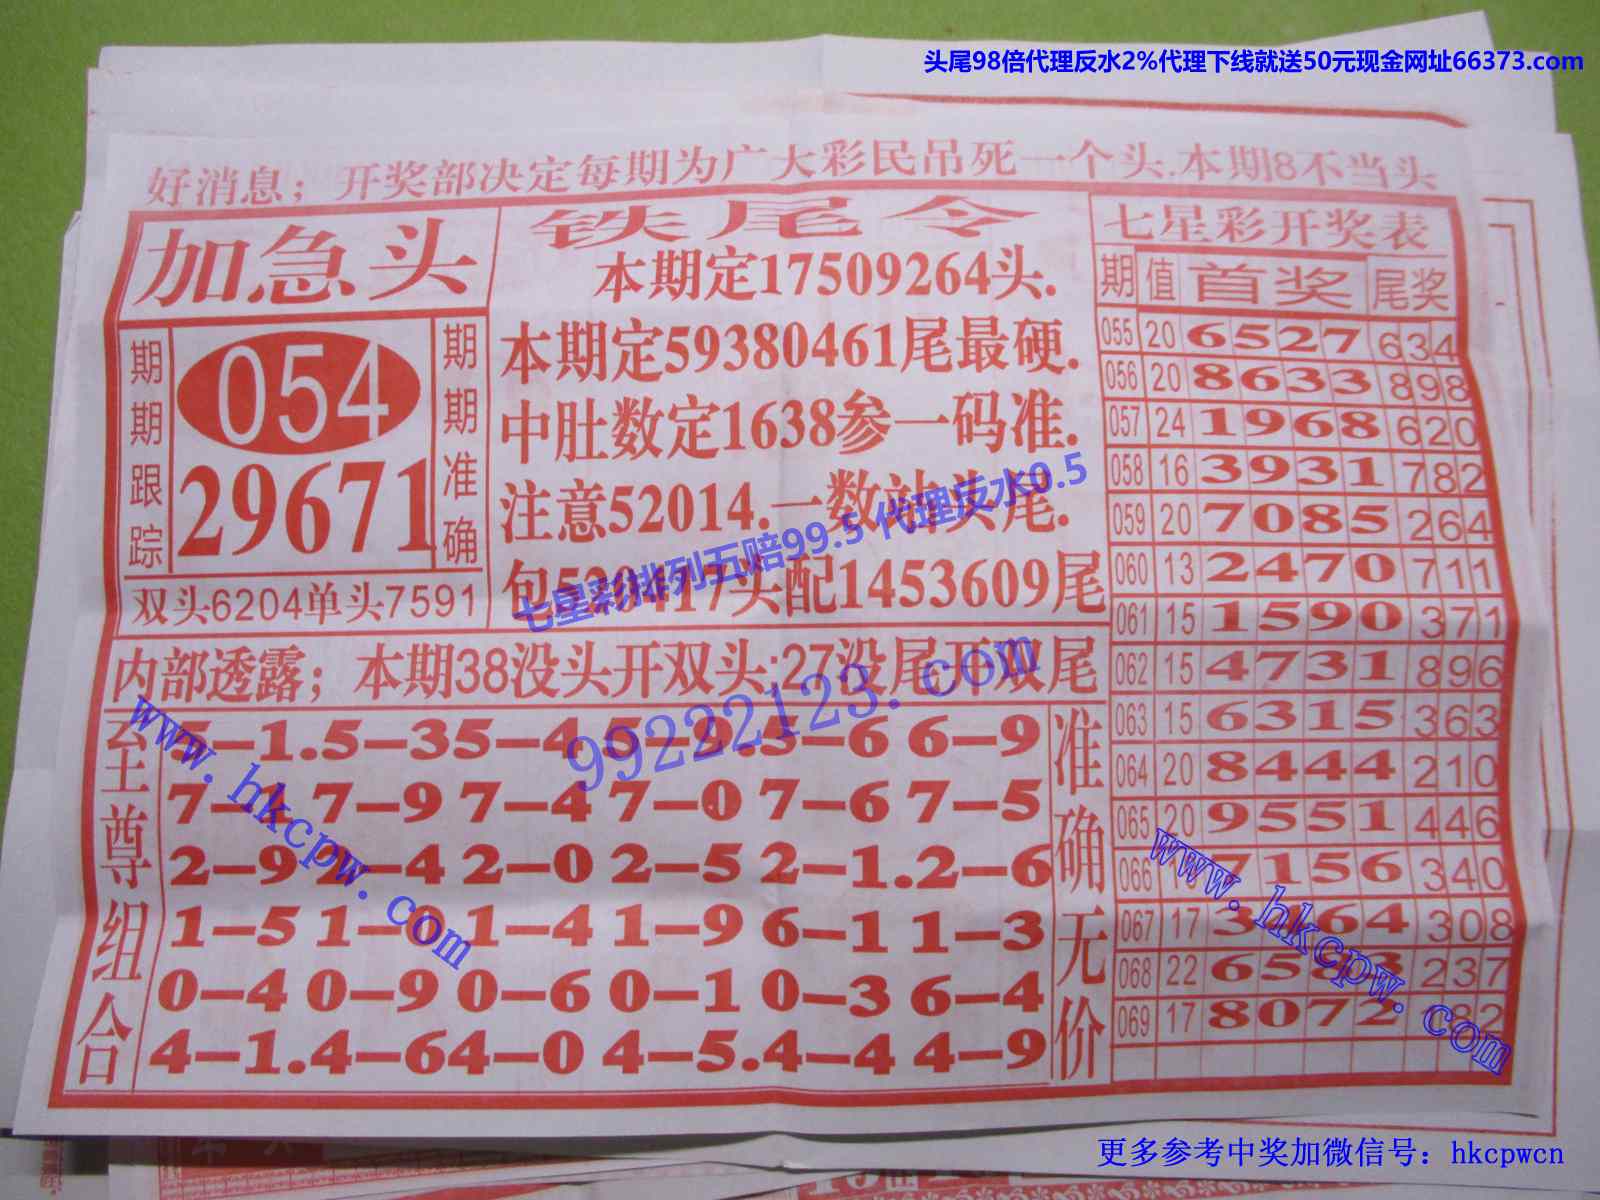 头尾98倍代理反水2%代理下线就送50元现金网址66373.com
好消息；开奖部决定每期为广大彩民吊死一个头.本期8不当头
加急头
期期跟踪
054
29671
期期准确
双头6204单头7591
铁尾令
本期定17509264头.
本期定59380461尾最硬.
中肚数定1638参一码准.
注意52014.一数神头尾.
包520417头配1453609尾
七星彩排列五赔99.5 代理反水0.5
内部透露；本期38没头开双头;27没尾开双尾
99222123.com
www.hkcpw.com
至尊组合
5—1.5—35—45—0.5—6 6—9
7—1 7—9 7—4 7—0 7—6 7—5
2—9 2—4 2—0 2—5 2—1.2—6
1—5 1—0 1—4 1—9 6—1 1—3
0—4 0—9 0—6 0—1 0—3 6—4
4—1.4—64—0 4—5.4—4 4—9
准确无价
七星彩开奖表
期 值 首奖 尾奖
055 20 6527 634
056 20 8633 898
057 24 1968 620
058 16 3931 782
059 20 7085 264
060 13 2470 711
061 15 1590 371
062 15 4731 896
063 15 6315 363
064 20 8444 210
065 20 9551 446
066 7156 340
067 17 3464 308
068 22 65 3 237
069 17 8072 82
www.hkcpw.com
更多参考中奖加微信号：hkcpwcn